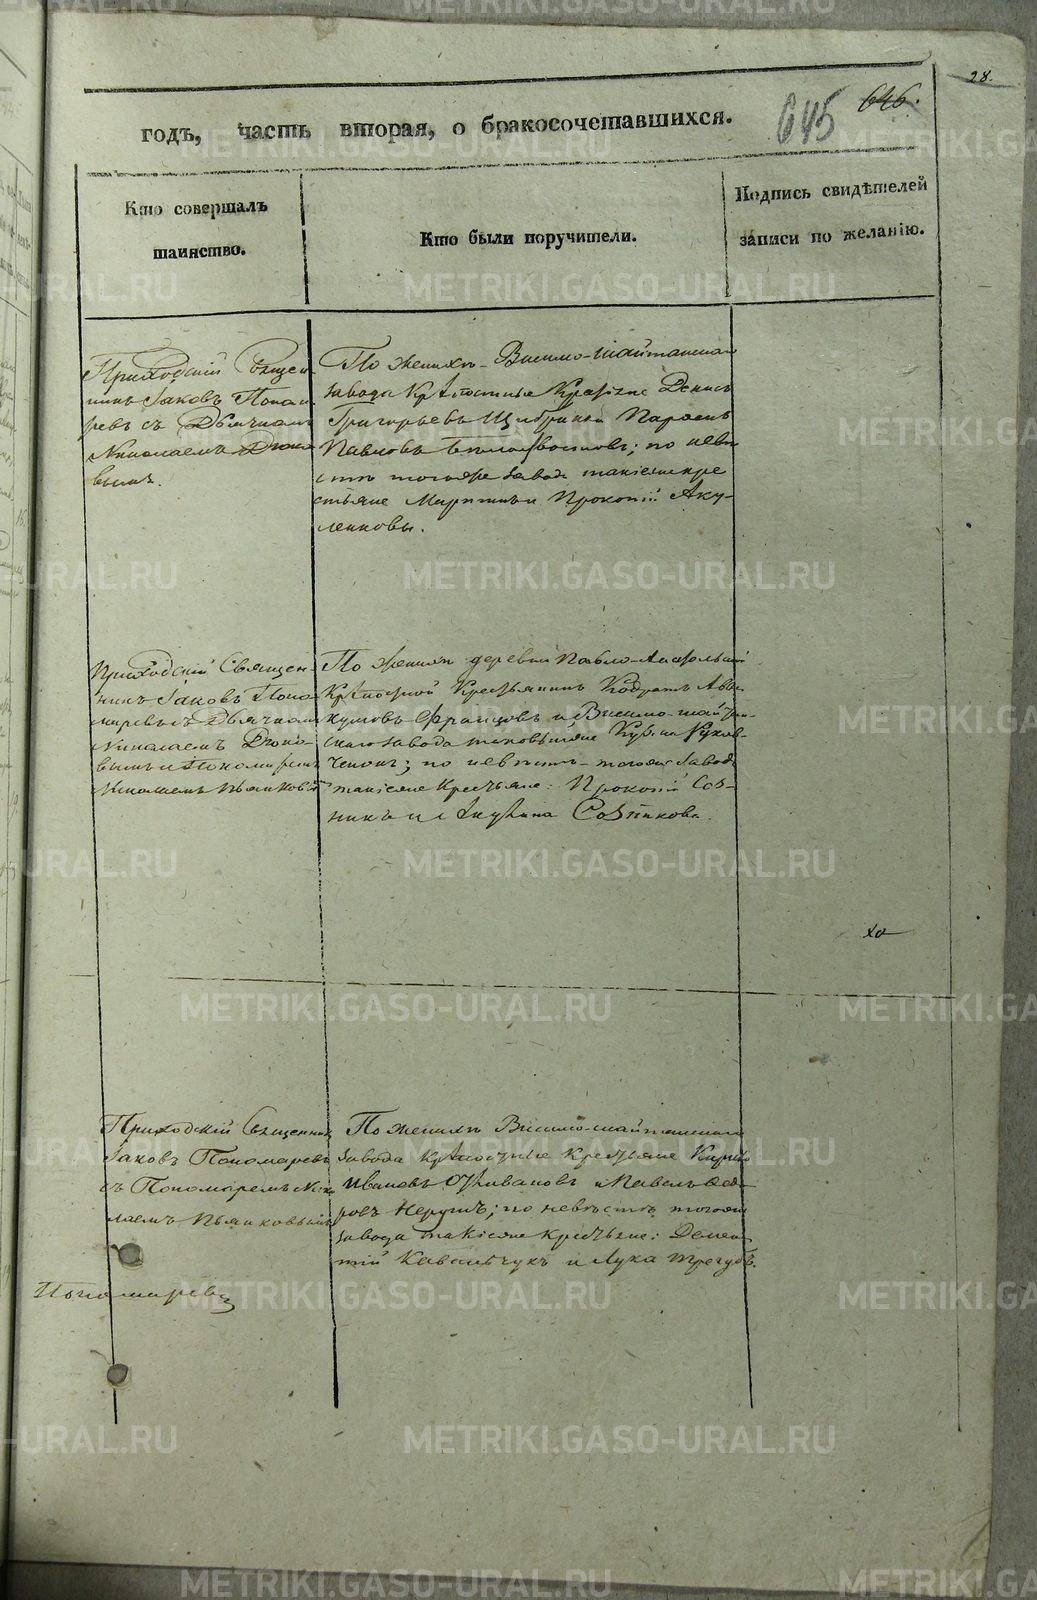 28.
645 646.
годъ, часть вторая, о бракосочетавшихся.
Кто совершалъ
таинство.
Кто были поручители.
Подпись свидѣтелей
записи по желанію.
Приходскій Священ
никъ Іаковъ Понама
ревъ съ Дьячкомъ
Николаемъ
вымъ.
По женихѣ Висимо-шайтанскаго
завода крѣпостные Крестьяне Денисъ
Григорьевъ и Парѳенъ
Павловъ по невѣ
стѣ тогоже завода такіеже кре
стьяне Мартинъ и Прокопій Аку-
ленковы.
Приходскій Священ-
никъ Іаковъ Поно
маревъ съ Дьячкомъ
Николаемъ
вымъ и Пономаремъ
Николаемъ Пьянковымъ
По женихѣ деревни Павло-Анатольской
крѣпостной Крестьянинъ Кодратъ Авва
кумовъ Францовъ и Висимо-шайтан-
скаго завода таковыйже
ченокъ; по невѣстѣ тогоже завода
такіеже Крестьяне: Прокопій Соз-
никъ и Акулина Созникова.
ха
Приходскій Священникъ
Іаковъ Пономаревъ
съ Пономаремъ Нико
лаемъ Пьянковымъ
По женихѣ Висимо-шайтанскаго
завода крѣпостные Крестьяне Кирило
Ивановъ и Павелъ Ѳедо
ровъ по невѣстѣ тогоже
завода такіеже крестьяне: Демен
тій Ковальчукъ и Лука Трегубъ.
Пономаревъ
METRIKI.GASO-URAL.RU